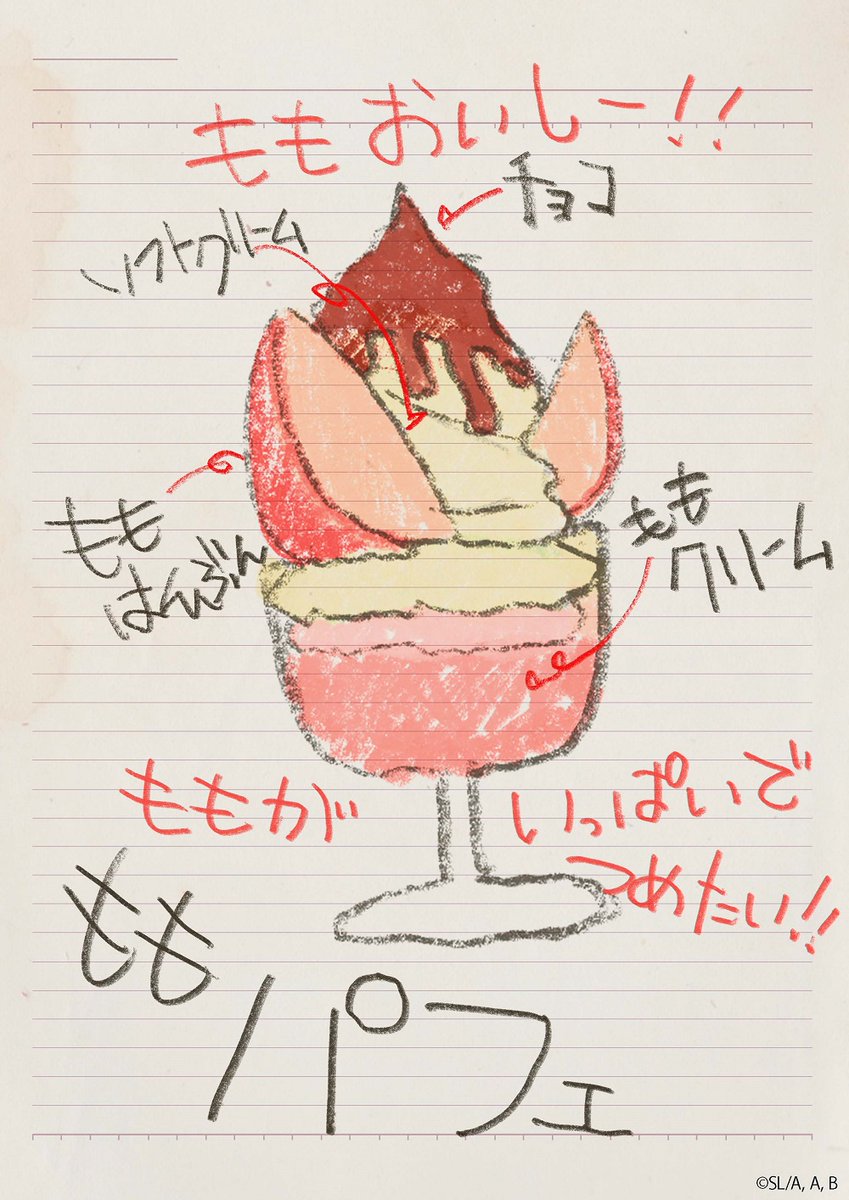 ももおいしー!!
チョコ
ソフトクリーム
もも
はんぶん
もも
クリーム
ももが いっぱいで
つめたい!!
もも
パフェ
©SL/A, A, B